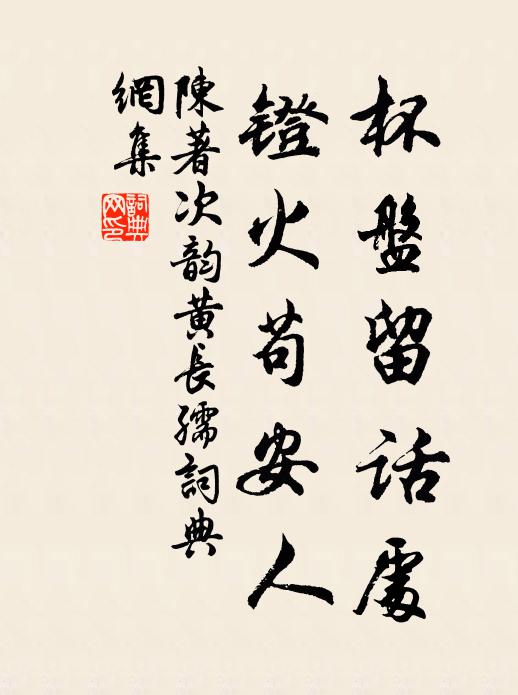 杯盤留話處
鐙火苟安人
陳著次韵黄長孺詞典
網集
詞典
网印